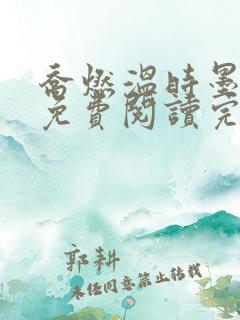 喬燃溫時墨
免費閱讀完
郭耕
未经同意禁止转载